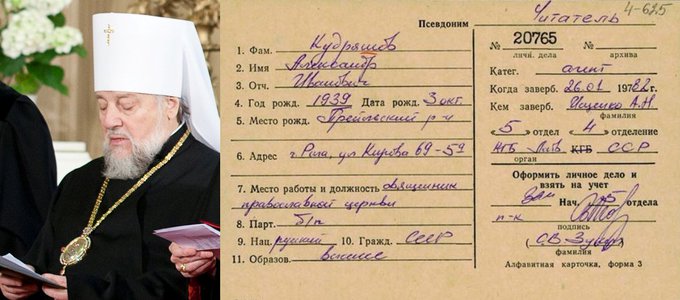 4-625
Псевдоним Читатель
1. Фам. Кудряшов
2. Имя Александр
3. Отч. Иванович
4. Год рожд. 1939 Дата рожд. 3 окт.
5. Место рожд. Прейльский р-н
6. Адрес г. Рига, ул Кирова 69-5а
7. Место работы и должность священник
православной церкви
8. Парт. б/п
9. Нац. русский 10. Гражд. СССР
11. Образов. высшее
№ 20765 №
личн. дела архива
Катег. агент
Когда заверб. 26.01 1982 г.
Кем заверб. Ищенко А.Н.
фамилия
«5» отдел «4» отделение
КГБ Латв КГБ ССР
орган
Оформить личное дело и
взять на учет
Зам Нач. 5 отдела
п-к
подпись
фамилия
Алфавитная карточка, форма 3